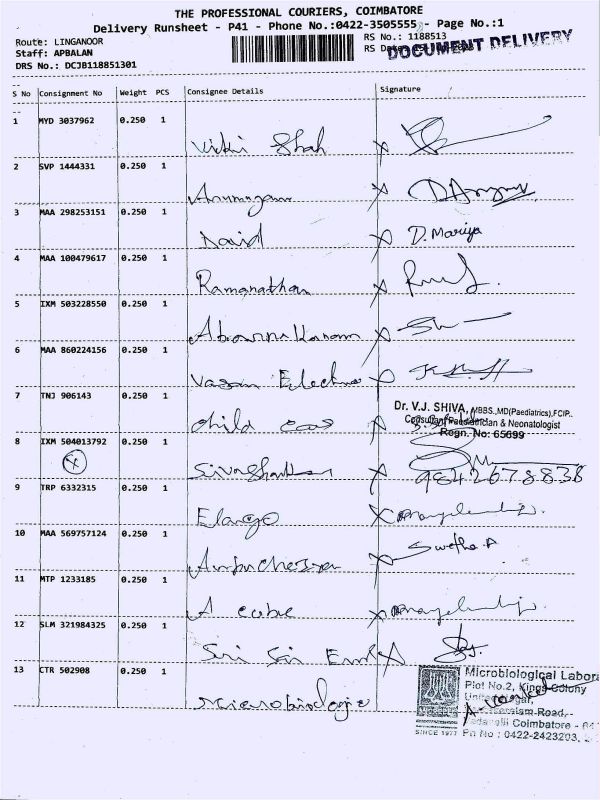 THE PROFESSIONAL COURIERS, COIMBATORE
Delivery Runsheet - P41 - Phone No.:0422-3505555 - Page No.:1
Route: LINGANOOR
RS No.: 1188513
Staff: APBALAN
RS
DOCUMENT DELIVERY
DRS No.: DCJB118851301
S No Consignment No Weight PCS Consignee Details Signature
1 MYD 3037962 0.250 1
Vicki Shah X
2 SVP 1444331 0.250 1
Arumugam X
3 MAA 298253151 0.250 1
David X D. Mariya
4 MAA 100479617 0.250 1
Ramanathan X
5 IXM 503228550 0.250 1
X
6 MAA 860224156 0.250 1
Vasan X
7 TNJ 906143 0.250 1
Dr. V.J. SHIVA, MBBS.,MD(Paediatrics),FCIP.,
Consultant Paediatrician & Neonatologist
Regn. No: 65699
Child X
8 IXM 504013792 0.250 1
X
X 9842678838
9 TRP 6332315 0.250 1
Elango X
10 MAA 569757124 0.250 1
X Swetha.A
11 MTP 1233185 0.250 1
A cube X
12 SLM 321984325 0.250 1
Sri Sai X
13 CTR 502908 0.250 1
Microbiological Labora
Plot No.2, Kings Colony
Road,
Coimbatore - 64
SINCE 1977 Ph No : 0422-2423203,